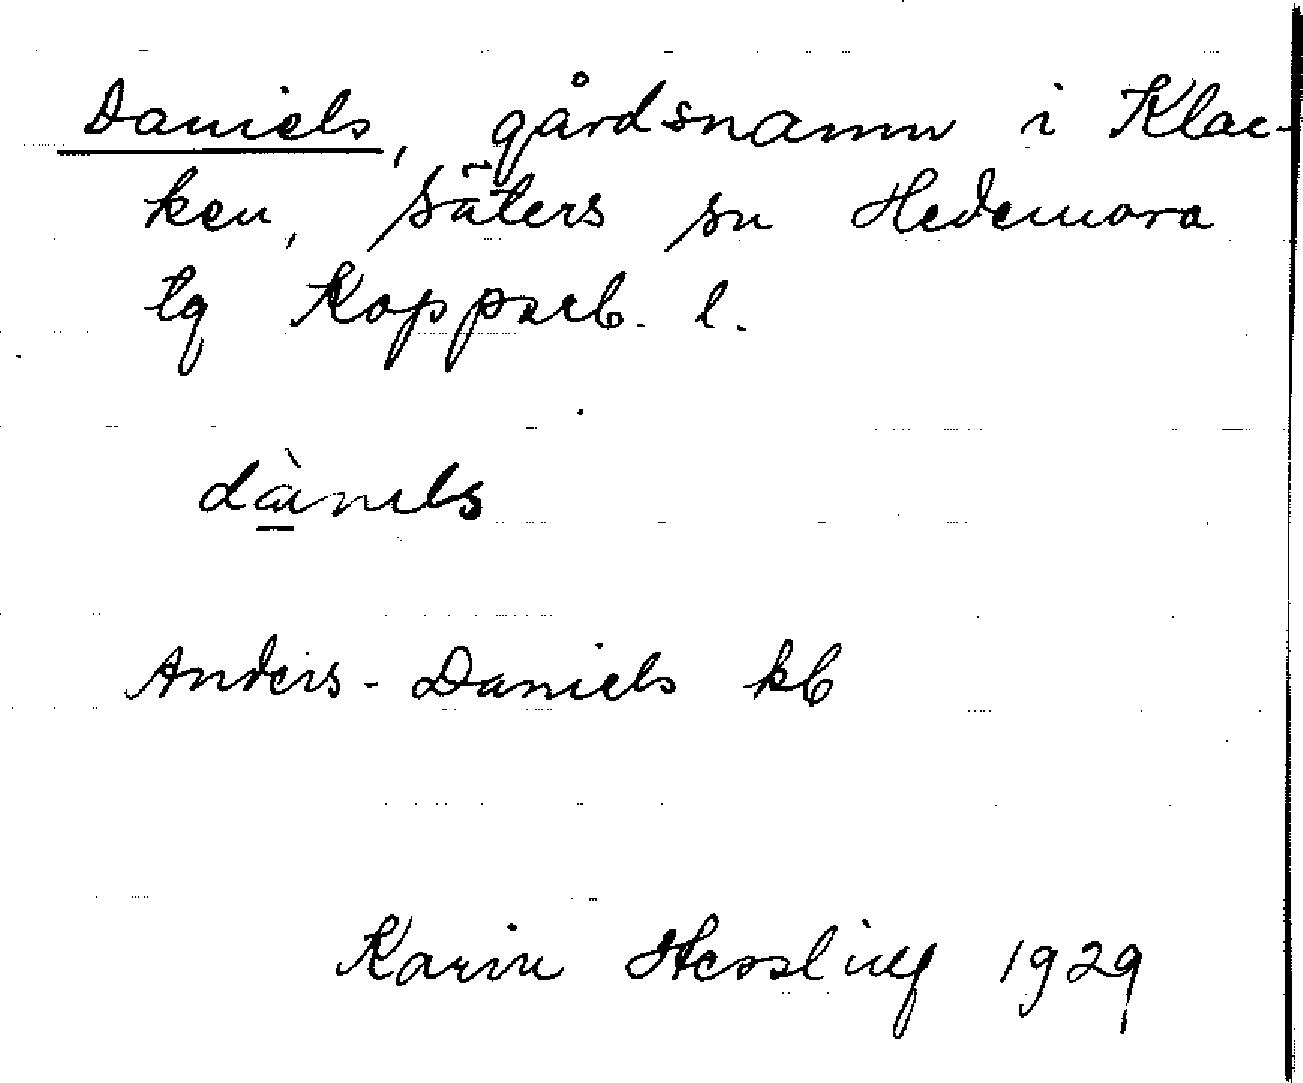 Daniels, gårdsnamn i Klac-
ken, Säters sn Hedemora
tg Kopparb. l.
dànils
Anders-Daniels kb
Karin Hessling 1929